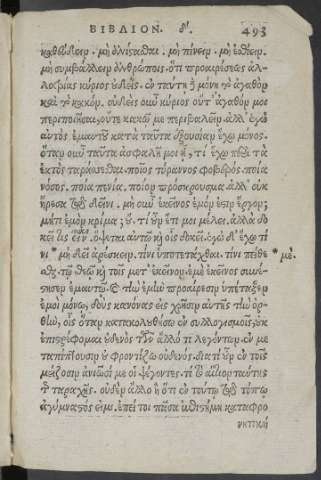 ΒΙΒΛΙΟΝ. δ'. 493
καθεύδειν. μὴ ἀνίστασθαι. μὴ πίνειν. μὴ ἐσθίειν.
μὴ συμβάλλειν ἀνθρώποις. ὅτι προαιρέσεως ἀλ-
λοτρίας κύριος οὐδείς. ἐν ταύτῃ δὲ μόνῃ τὸ ἀγαθὸν
καὶ τὸ κακόν. οὐδεὶς οὖν κύριος οὔτ' ἀγαθόν μοι
περιποιῆσαι, οὔτε κακῷ με περιβαλεῖν ἀλλ' ἐγὼ
αὐτὸς ἐμαυτοῦ κατὰ ταῦτα ἐξουσίαν ἔχω μόνος.
ὅταν οὖν ταῦτα ἀσφαλῆ μοι ᾖ, τί ἔχω περὶ τὰ
ἐκτὸς ταράσσεσθαι. ποῖος τύραννος φοβερός. ποία
νόσος. ποία πενία. ποῖον πρόσκρουσμα. ἀλλ' οὐκ
ἤρεσα τῷ δεῖνι. μὴ οὖν ἐκεῖνος ἐμόν ἐστιν ἔργον;
μήτι ἐμὸν κρίμα; οὔ. τί οὖν ἔτι μοι μέλει. ἀλλὰ δο
κεῖ τις εἶναι. ὄψεται αὐτῷ καὶ οἷς δοκεῖ. ἐγὼ δ' ἔχω τί
νι * μὴ δεῖ ἀρέσκειν. τίνι ὑποτετάχθαι. τίνι πείθε * μέ.
σθαι. τῷ θεῷ καὶ τοῖς μετ' ἐκεῖνον. ἐμὲ ἐκεῖνος συνέ-
στησεν ἐμαυτῷ. καὶ τὴν ἐμὴν προαίρεσιν ὑπέταξεν
ἐμοὶ μόνῳ, δοὺς κανόνας εἰς χρῆσιν αὐτῆς τὴν ὀρ-
θήν, οἷς ὅταν κατακολουθήσω ἐν συλλογισμοῖς, οὐκ
ἐπιστρέφομαι οὐδενὸς τῶν ἄλλο τι λεγόντων. ἐν με
ταπίπτουσιν οὐ φροντίζω οὐδενός. διατί οὖν ἐν τοῖς
μείζοσιν ἀνιῶσί με οἱ ψέγοντες. τί τὸ αἴτιον ταύτης
τῆς ταραχῆς. οὐδὲν ἄλλο ἢ ὅτι ἐν τούτῳ τῷ τόπῳ
ἀγύμναστός εἰμι. ἐπεί τοι πᾶσα ἐπιστήμη καταφρο
νητική